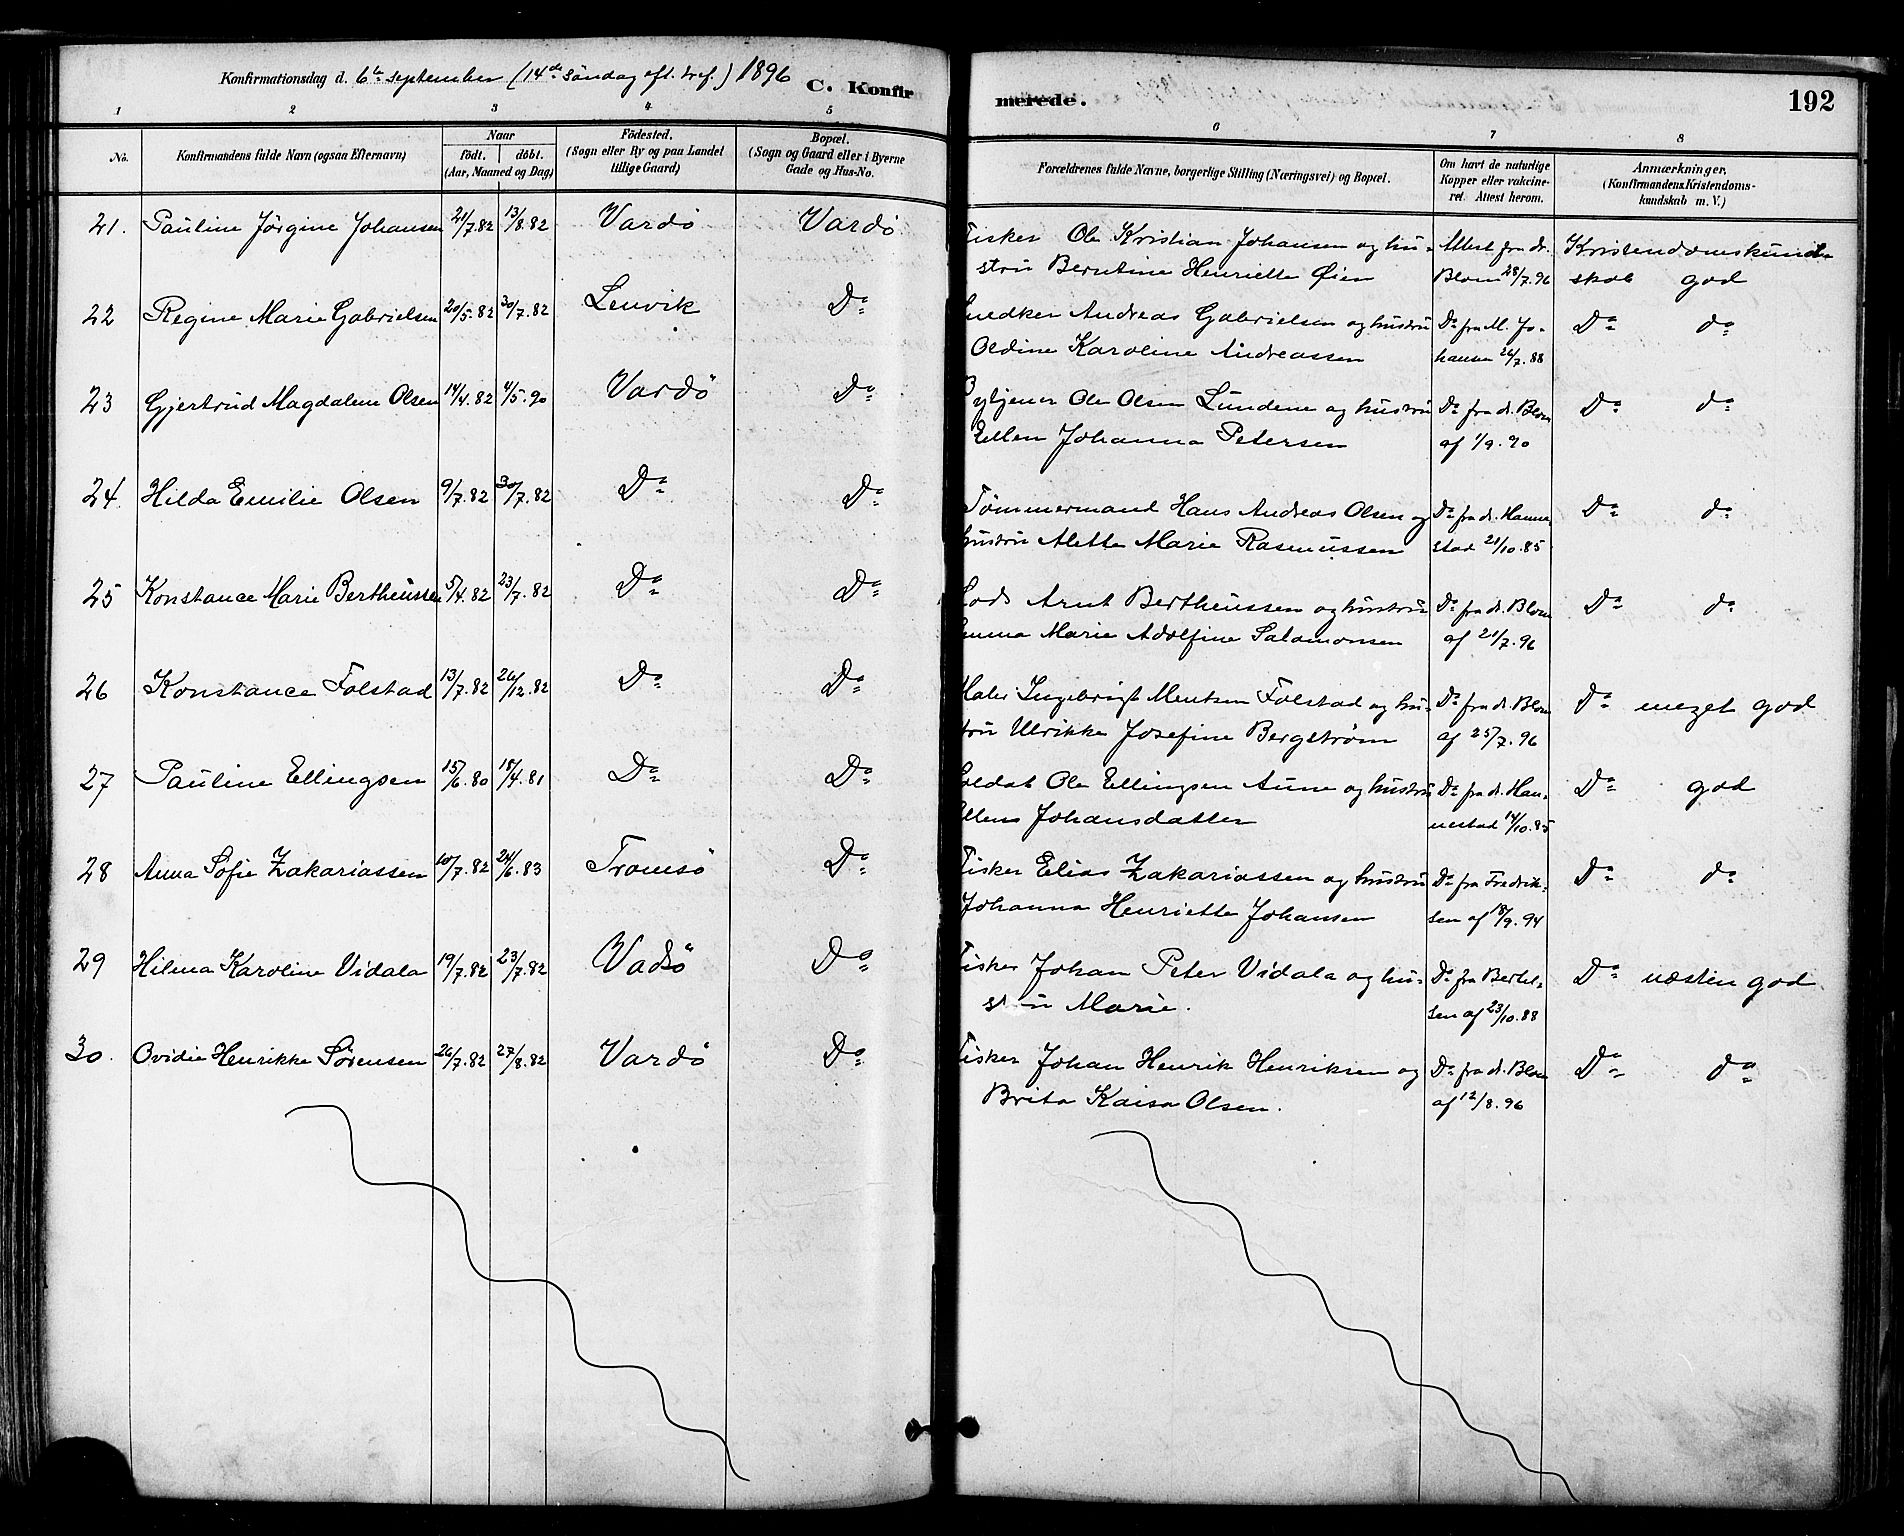 Konfirmationsdag d. 6te september (14de søndag eft. tref.) 1896 C. Konfir
merede. 192
1 2 3 4 5
6 7 8
No. Konfirmandens fulde Navn (ogsaa Efternavn) Naar født. døbt. (Aar, Maaned og Dag) Fødested. (Sogn eller By og paa Landet tillige Gaard) Bopæl. (Sogn og Gaard eller i Byerne Gade og Hus-No.
Forældrenes fulde Navne, borgerlige Stilling (Næringsvei) og Bopæl. Om havt de naturlige Kopper eller vakcineret. Attest herom. Anmærkninger, (Konfirmandens Kristendomskundskab m. V.)
21. Pauline Jörgine Johansen 21/7.82 13/8.82 Vardö Vardö
Fisker Ole Kristian Johansen og hu- Attest fra dr. Kristendomskund-
stru Berntine Henriette Øien Blom 28/7.96 skab god
22 Regine Marie Gabrielsen 20/5.82 30/7.82 Lenvik Do
Snedker Andreas Gabrielsen og hustru Do fra M. Jo- Do do
Oldine Karoline Andreassen hansen 26/7.88
23 Gjertrud Magdalene Olsen 14/4.82 4/5.90 Vardö Do
Ole Olsen Lundene og hustru Do fra dr. Blom Do do
Ellen Johanna Petersen af 1/9.90
24. Hilda Emilie Olsen 9/7.82 30/7.82 Do Do
Tømmermand Hans Andreas Olsen og Do fra dr. Hanne- Do do
hustru Alette Marie Rasmussen stad 21/10.85
25 Konstance Marie Bertheussen 5/4.82 23/7.82 Do Do
Lods Arnt Bertheussen og hustru Do fra dr. Blom Do do
Emma Marie Adolfine Salamonsen af 21/7.96
26 Konstance Folstad 13/7.82 26/12.82 Do Do
Maler Ingebrigt Mentsen Folstad og hu- Do fra dr. Blom Do meget god
stru Ulrikke Josefine Bergstrøm af 25/7.96
27 Pauline Ellingsen 15/6.80 18/4.81 Do Do
Soldat Ole Ellingsen Aune og hustru Do fra dr. Han- Do god
Ellens Johansdatter nestad 14/10.85
28 Anna Sofie Zakariassen 10/7.82 24/6.83 Tromsö Do
Fisker Elias Zakariassen og hustru Do fra Fredrik- Do do
Johanna Henriette Johansen sen af 18/9.94
29 Hilma Karoline Vidala 19/7.82 23/7.82 Vadsö Do
Fisker Johan Peter Vidala og hu- Do fra Berthel- Do næsten god
stru Marie. sen af 23/10.88
30. Ovidie Henrikke Sørensen 26/7.82 27/8.82 Vardö Do
Fisker Johan Henrik Henriksen og Do fra dr. Blom Do do
Brita Kaisa Olsen. af 12/8.96